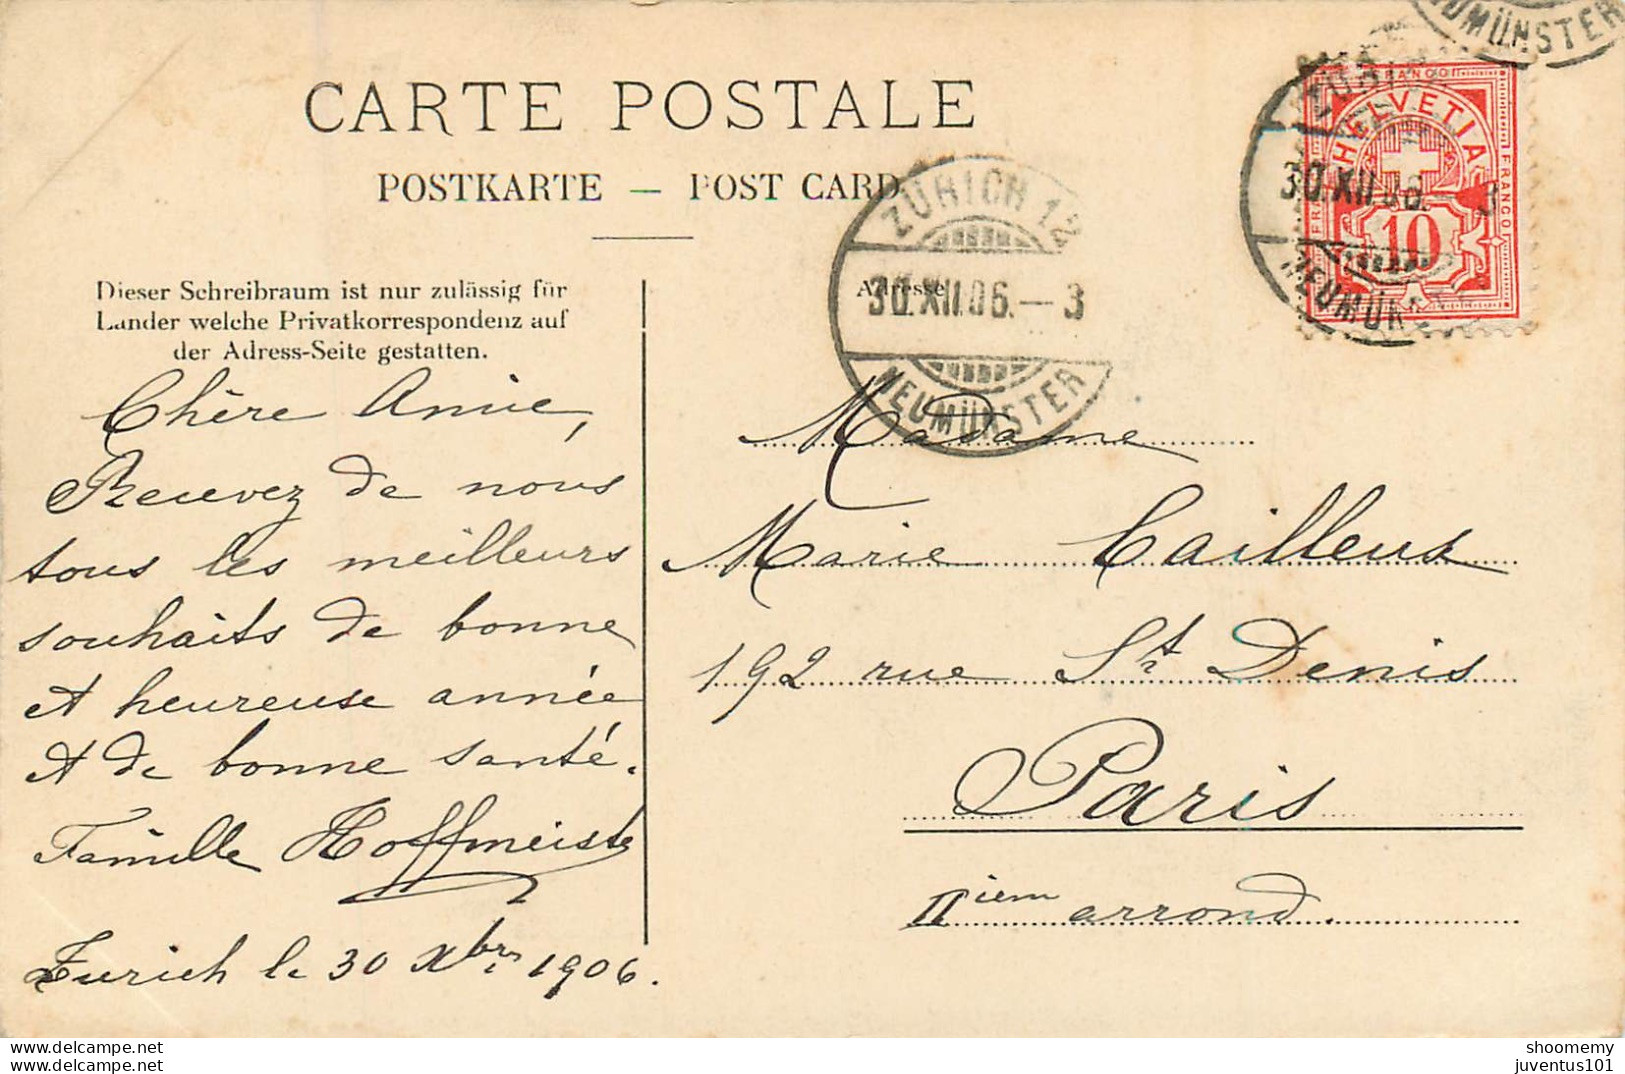 CARTE POSTALE
POSTKARTE — POST CARD
Dieser Schreibraum ist nur zulässig für
Länder welche Privatkorrespondenz auf
der Adress-Seite gestatten.
Chère Amie,
Recevez de nous
tous les meilleurs
souhaits de bonne
et heureuse année
et de bonne santé.
Famille Hoffmeister
Zurich le 30 Xbre 1906.
ZÜRICH 12
30.XII.06.—3
NEUMÜNSTER
Adresse
NEUMÜNSTER
FRANCO
HELVETIA
FRANCO
10
ZÜRICH
30.XII.06. 3
NEUMÜNSTER
Madame
Marie Cailleux
192 rue St Denis
Paris
IIièm arrond.
www.delcampe.net
shoomemy
juventus101